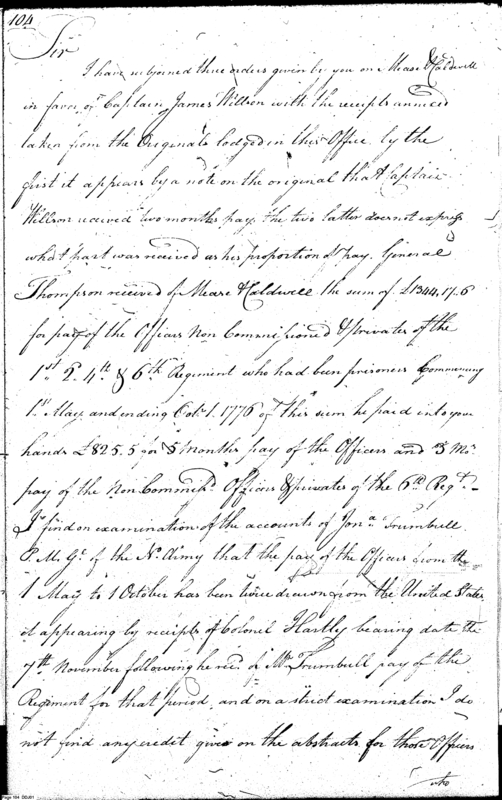 104
Sir
I have subjoined three orders given by you on Mease & Caldwell
in favor of Captain James Willson with the receipts annexed
taken from the Originals lodged in this Office by the
first it appears by a note on the original that Captain
Willson received two months pay, the two latter does not express
what part was received as his proportion of pay. General
Thompson received of Mease & Caldwell the sum of £1344,17.6
for pay of the Officers Non Commissioned & privates of the
1st 2d 4th & 6th Regiment who had been prisoners Commencing
1st May and ending Octr 1. 1776 of this sum he paid into your
hands £825.5 for 5 months pay of the Officers and 3 Mos
pay of the Non Commisd Officers & privates of the 6th Regt. –
I find on examination of the accounts of Jona Trumbull
P. M. Gl of the No Army that the pay of the Officers from the
1 May to 1 October has been twice drawn from the United States
it appearing by receipts of Colonel Hartly bearing date the
7th November following he recd of Mr Trumbull pay of the
Regiment for that period, and on a strict examination I do
not find any credit given on the abstracts for those Officers
who
Page 104